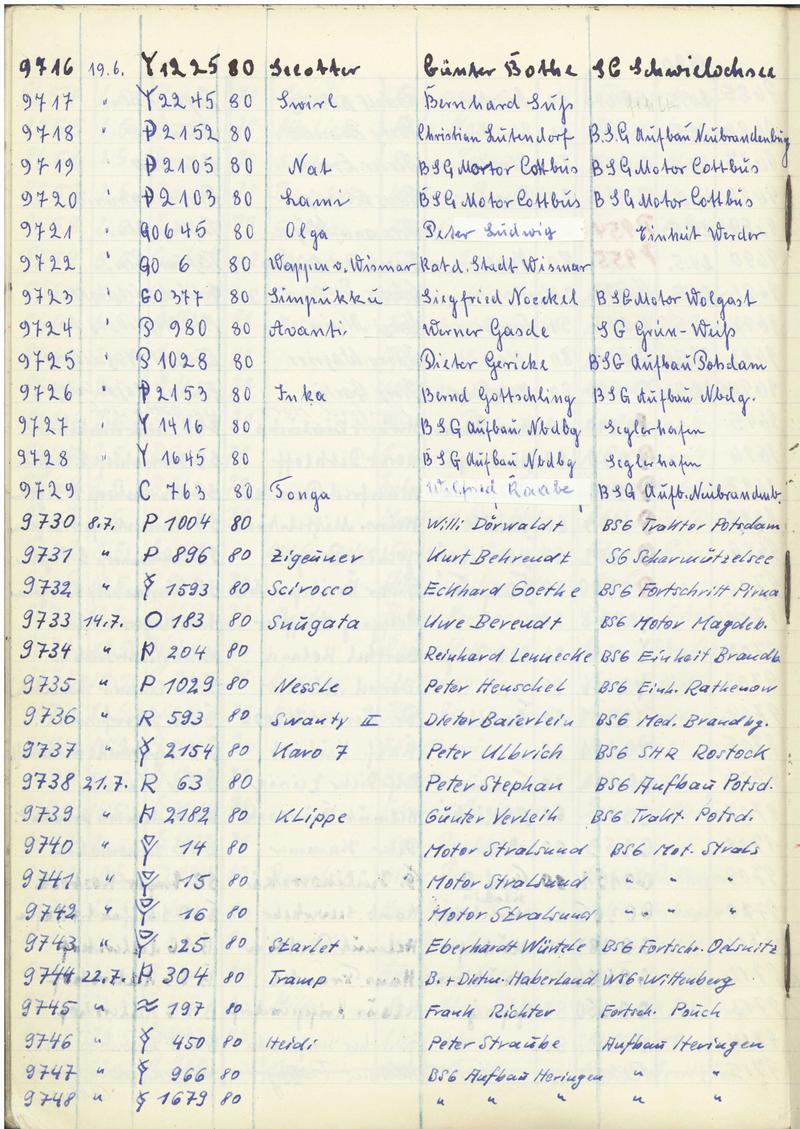 9716 19.6. Y 1225 80 Seeotter Günter Bothe SG Schwielochsee
9717 " Y 2245 80 Swirl Bernhard Süß
9718 " P 2152 80 Christian Lutendorf B.S.G Aufbau Neubrandenburg
9719 " P 2105 80 Nat BSG Motor Cottbus BSG Motor Cottbus
9720 " P 2103 80 Lami BSG Motor Cottbus BSG Motor Cottbus
9721 " GO 645 80 Olga Peter Ludwig Einheit Werder
9722 " GO 6 80 Wappen v. Wismar Rat d. Stadt Wismar
9723 " GO 377 80 Simpukku Siegfried Noeckel BSG Motor Wolgast
9724 " P 980 80 Avanti Werner Gasde SG Grün-Weiß
9725 " P 1028 80 Dieter Gericke BSG Aufbau Potsdam
9726 " P 2153 80 Inka Bernd Gottschling BSG Aufbau Nbdg.
9727 " Y 1416 80 BSG Aufbau Nbdbg Seglerhafen
9728 " Y 1645 80 BSG Aufbau Nbdbg Seglerhafen
9729 C 763 80 Tonga Wilfried Raabe BSG Aufb. Neubrandenb.
9730 8.7. P 1004 80 Willi Dörwaldt BSG Traktor Potsdam
9731 " P 896 80 Zigeuner Kurt Behrendt SG Scharmützelsee
9732 " 1593 80 Scirocco Eckhard Goethe BSG Fortschritt Pirna
9733 14.7. O 183 80 Snugata Uwe Berendt BSG Motor Magdeb.
9734 " 204 80 Reinhard Lennecke BSG Einheit Brandb.
9735 " P 1029 80 Nessie Peter Henschel BSG Einh. Rathenow
9736 " R 593 80 Swanty II Dieter Baierlein BSG Med. Brandbg.
9737 " 2154 80 Karo 7 Peter Ulbrich BSG SHR Rostock
9738 21.7. R 63 80 Peter Stephan BSG Aufbau Potsd.
9739 " 2182 80 Klippe Günter Verleih BSG Trakt. Potsd.
9740 " 14 80 Motor Stralsund BSG Mot. Strals
9741 " 15 80 Motor Stralsund " " "
9742 " 16 80 Motor Stralsund " " "
9743 " 25 80 Starlet Eberhardt BSG Fortschr. Oelsnitz
9744 22.7. 304 80 Tramp B. + Dietm. Haberland WSG Wittenberg
9745 " 197 80 Frank Richter Fortsch. Pouch
9746 " 450 80 Heidi Peter Straube Aufbau Heringen
9747 " 966 80 BSG Aufbau Heringen " "
9748 " 1679 80 " " " " "